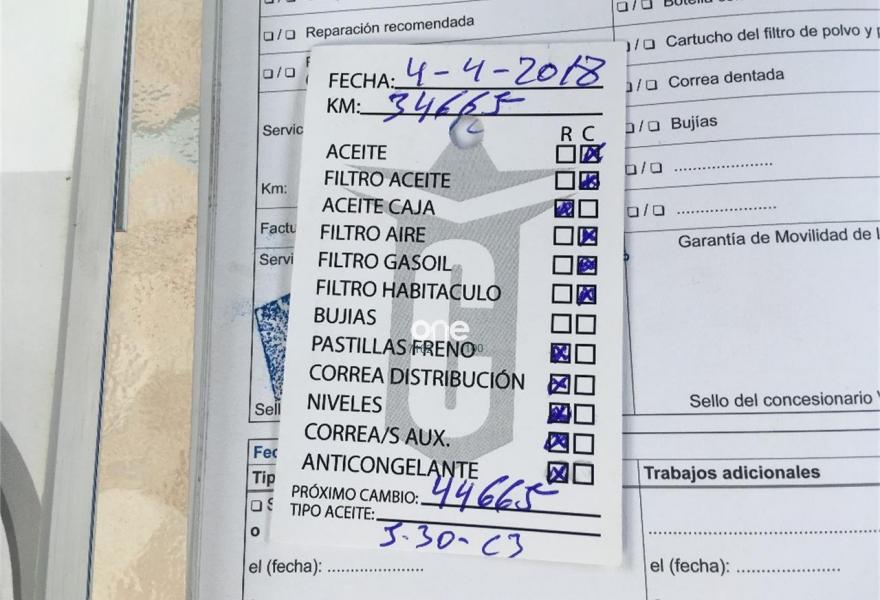 ☐/☐ Reparación recomendada
☐/☐ Cartucho del filtro de polvo y
☐/☐ Correa dentada
☐/☐ Bujías
☐/☐ ....................
☐/☐ ....................
Garantía de Movilidad de l
Servic
Km:
Factu
Servi
FECHA: 4-4-2018
KM: 34665
R C
ACEITE ☐ ☒
FILTRO ACEITE ☐ ☒
ACEITE CAJA ☒ ☐
FILTRO AIRE ☐ ☒
FILTRO GASOIL ☐ ☒
FILTRO HABITACULO ☐ ☒
BUJIAS ☐ ☐
one
PASTILLAS FRENO ☒ ☐
CORREA DISTRIBUCIÓN ☒ ☐
NIVELES ☒ ☐
CORREA/S AUX. ☒ ☐
ANTICONGELANTE ☒ ☐
PRÓXIMO CAMBIO: 44665
TIPO ACEITE:
5-30-C3
Sell
Sello del concesionario V
Fec
Tip
Trabajos adicionales
☐ S
o
el (fecha): ....................
el (fecha): ....................